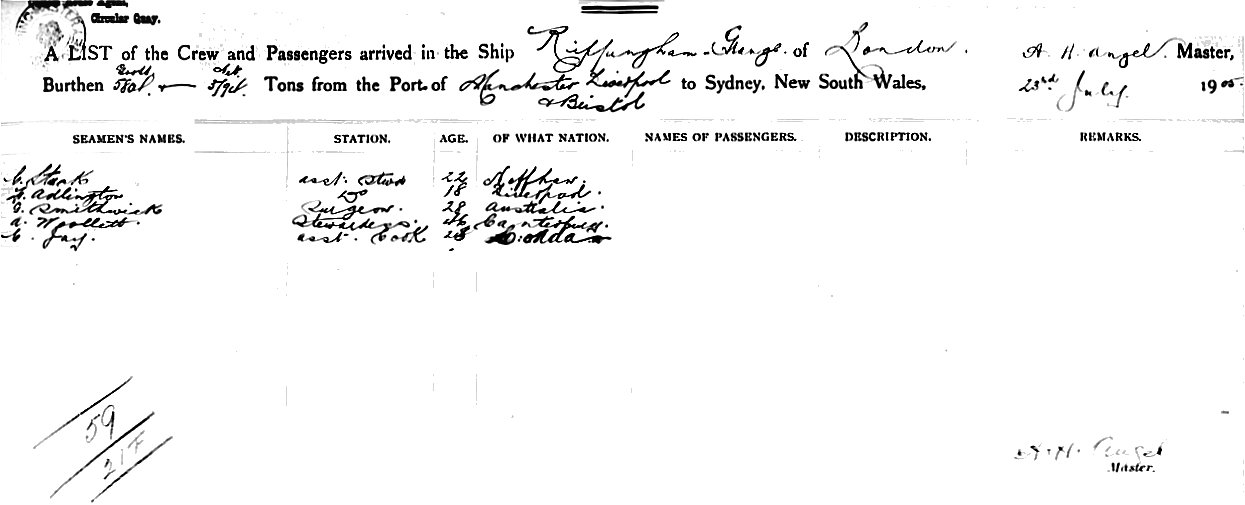 Circular Quay.
A LIST of the Crew and Passengers arrived in the Ship Rippingham Grange of London. A. H. Angel. Master,
Burthen Tons from the Port of Manchester Liverpool & Bristol to Sydney, New South Wales, 23rd July. 1905.
SEAMEN'S NAMES. STATION. AGE. OF WHAT NATION. NAMES OF PASSENGERS. DESCRIPTION. REMARKS.
C. Stark asst. Stwd 22
Adlington Do 18 Liverpool.
Smithwick Surgeon. 28 Australia.
A. Woollett. Stewardess. 46 Canterbury.
C. Jay. asst. Cook 28 London
59
217
A. H. Angel
Master.